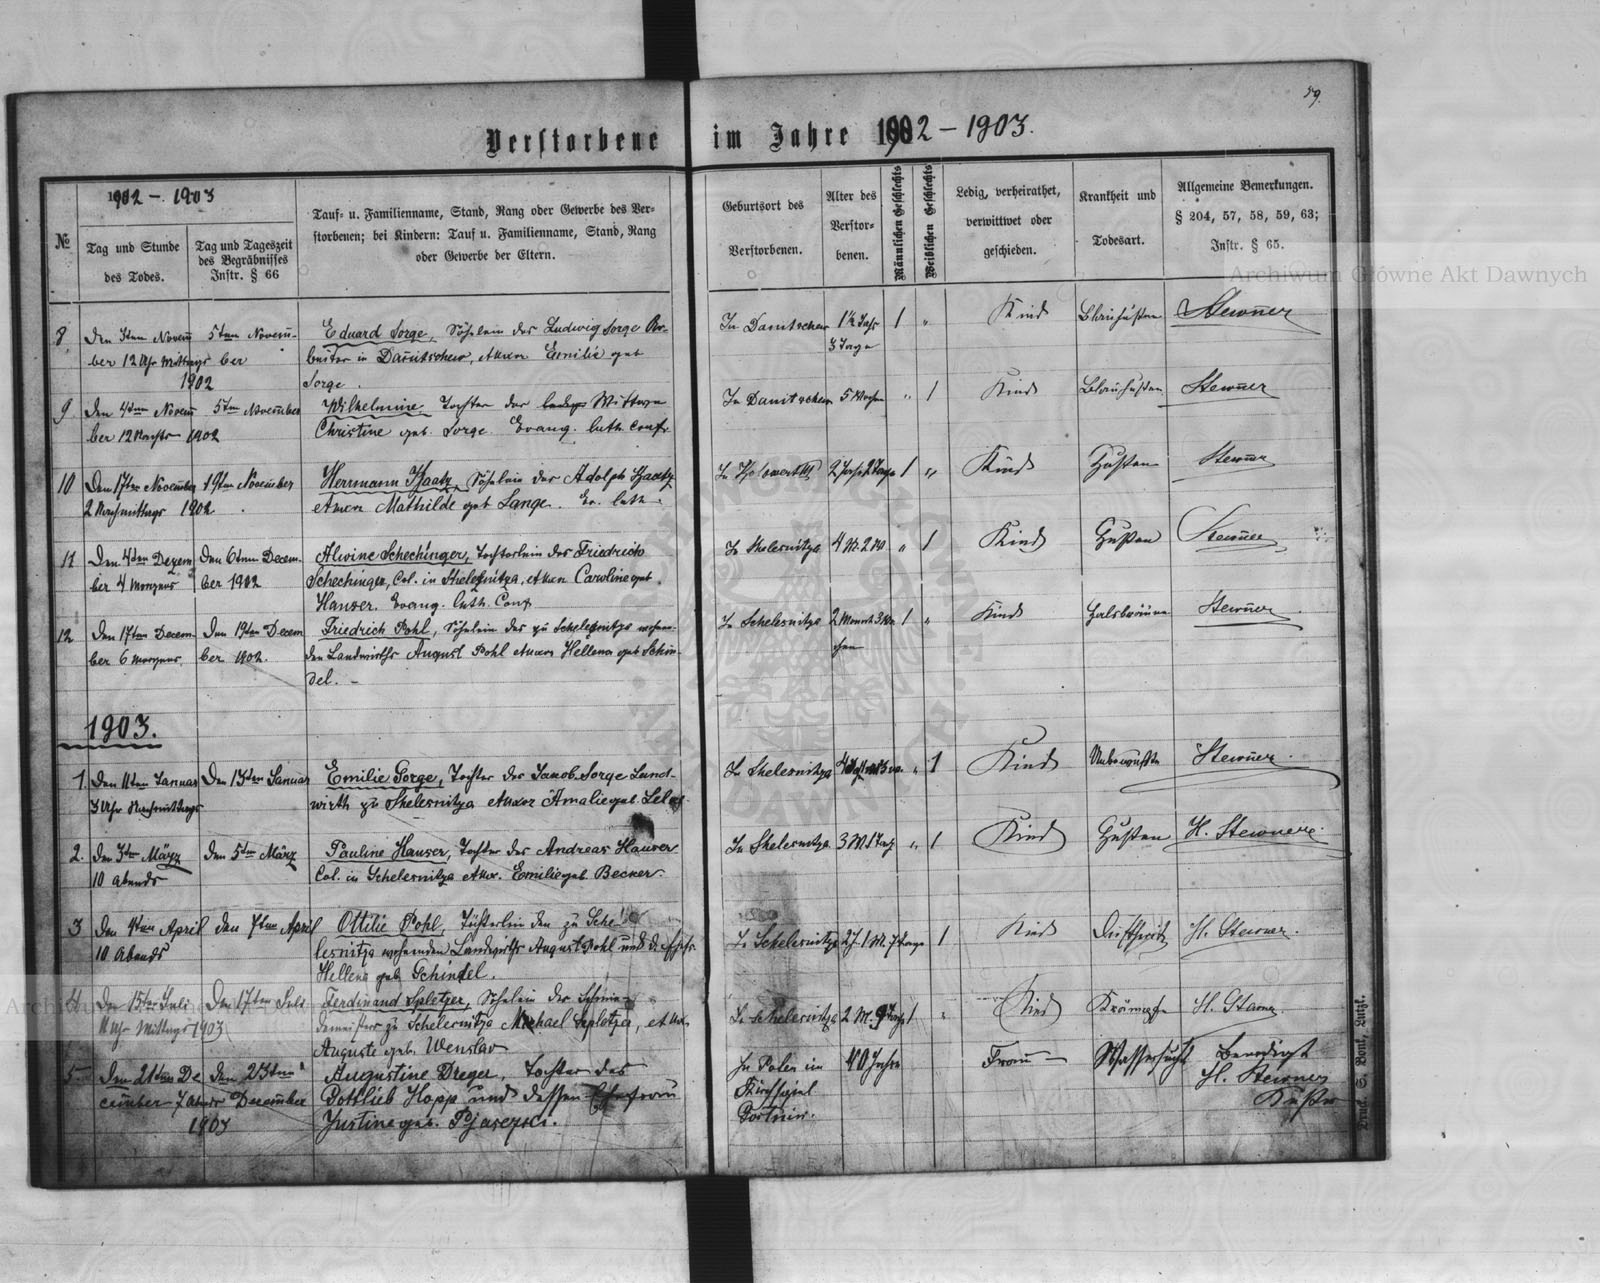 59.
Verstorbene im Jahre 1902 – 1903.
1902 – 1903
№
Tag und Stunde des Todes.
Tag und Tageszeit des Begräbnisses Instr. § 66
Tauf- u. Familienname, Stand, Rang oder Gewerbe des Ver-
storbenen; bei Kindern: Tauf u. Familienname, Stand, Rang
oder Gewerbe der Eltern.
Geburtsort des Verstorbenen.
Alter des Verstor- benen.
Männlichen Geschlechts
Weiblichen Geschlechts
Ledig, verheirathet, verwittwet oder geschieden.
Krankheit und Todesart.
Allgemeine Bemerkungen.
§ 204, 57, 58, 59, 63;
Instr. § 65.
8 Den 3ten Novem 5ten Novem- Eduard Sorge, Söhnlein des Ludwig Sorge Ar- In Danitschew 1½ Jahr 1 " Kind Stewner
ber 12 Uhr Mittags ber beiter in Danitschew, et uxor Emilie geb 3 Tage
1902 Sorge.
9 Den 4ten Novem 5ten November Wilhelmine Tochter der Wittwe In Danitschew 5 Wochen " 1 Kind Stewner
ber 12 Nachts 1902 Christine geb. Sorge. Evang. luth. Conf.
10 Den 17ten November 19ten November Herrmann Kaatz, Söhnlein des Adolph Kaatz 2 Jahr 2 Tage 1 " Kind Husten Stewner
2 Nachmittags 1902. et uxor Mathilde geb Lange. Ev. luth.
11 Den 4ten Dezem Den 6ten Decem- Alwine Schechinger, Tochterlein des Friedrich In Shelesnitza 4 M. 2 W " 1 Kind Husten Stewner
ber 4 Morgens ber 1902 Schechinger, Col. in Shelesnitza, et uxor Caroline geb.
Hauser. Evang. luth. Conf.
12 Den 17ten Decem- Den 19ten Decem Friedrich Pohl, Söhnlein des zu Schelesnitza wohnen- In Schelesnitza 2 Monat 3 Wo 1 " Kind Halsbräune Stewner
ber 6 morgens. ber 1902. den Landwirths August Pohl et uxor Hellena geb Schin- chen
del. –
1903.
1. Den 11ten Januar Den 13ten Januar Emilie Sorge, Tochter des Jacob Sorge Land- In Shelesnitza " 1 Kind Unbewußte Stewner.
3 Uhr Nachmittags wirth zu Shelesnitza et uxor Amalie geb.
2. den 3ten März den 5ten März Pauline Hauser, Tochter des Andreas Hauser In Shelesnitza 3 W. 1 Tag " 1 Kind Husten H. Stewner.
10 Abends Col. in Schelesnitza et ux. Emilie geb Becker.
3 Den 4ten April den 7ten April Ottilie Pohl, Töchterlein den zu Sche In Schelesnitza 2 J. 1 M. 7 Tage 1 Kind H. Stewner.
10 Abends lesnitza wohnenden Landwirths August Pohl und d.
Hellena geb Schindel.
4 Den 15ten Juli Den 17ten Juli Ferdinand Spletzer, Söhnlein des Schmie- In Schelesnitza 2 M. 9 Tage 1 " Kind Krämpfe H.
11 Uhr Mittags 1903 demeister zu Schelesnitza Michael Spletzer, et ux.
Auguste geb. Wenslav
5. Den 21ten De Den 23ten Augustine Dreger, Tochter des In Polen im 40 Jahre Frau Wassersucht Beerdigt
cember 7 Abends December Gottlieb Hopp und dessen Ehefrau Kirchspiel H. Stewner
1903 Justine geb. Küster
Druck S. Bonk, Lutzk.
Archiwum Główne Akt Dawnych